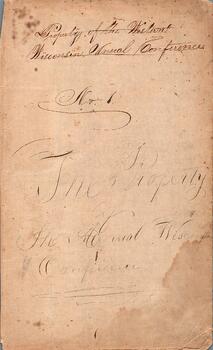 Property of The West
Wisconsin Annual Conference
No. 1.
The Property
The Annual Wis
Conference